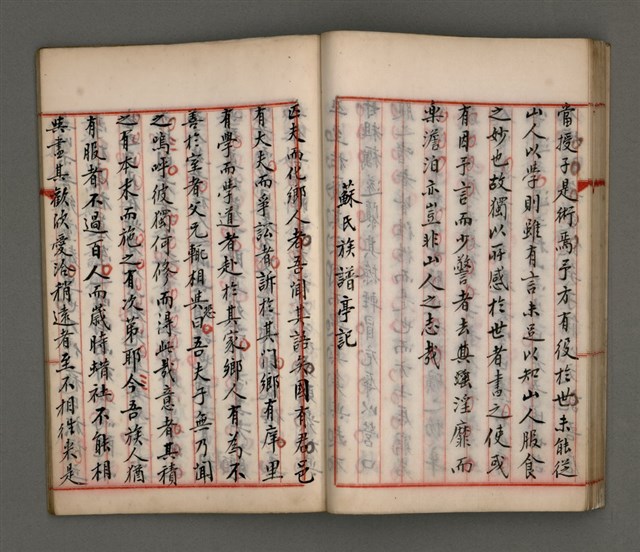 當授子是術焉予方有役於世未能從
山人以學則雖有言未足以知山人服食
之妙也故獨以所感於世者書之使或
有因予言而少警者去其驕淫靡而
樂澹泊亦豈非山人之志哉
蘇氏族譜亭記
匹夫而化鄉人者吾聞其語矣國有君邑
有大夫而爭訟者訴於其門鄉有庠里
有學而學道者赴於其家鄉人有為不
善於室者父兄輒相與恐曰吾夫子無乃聞
之嗚呼彼獨何修而得此哉意者其積
之有本末而施之有次第耶今吾族人猶
有服者不過百人而歲時蜡社不能相
與盡其歡欣愛洽稍遠者至不相往來是